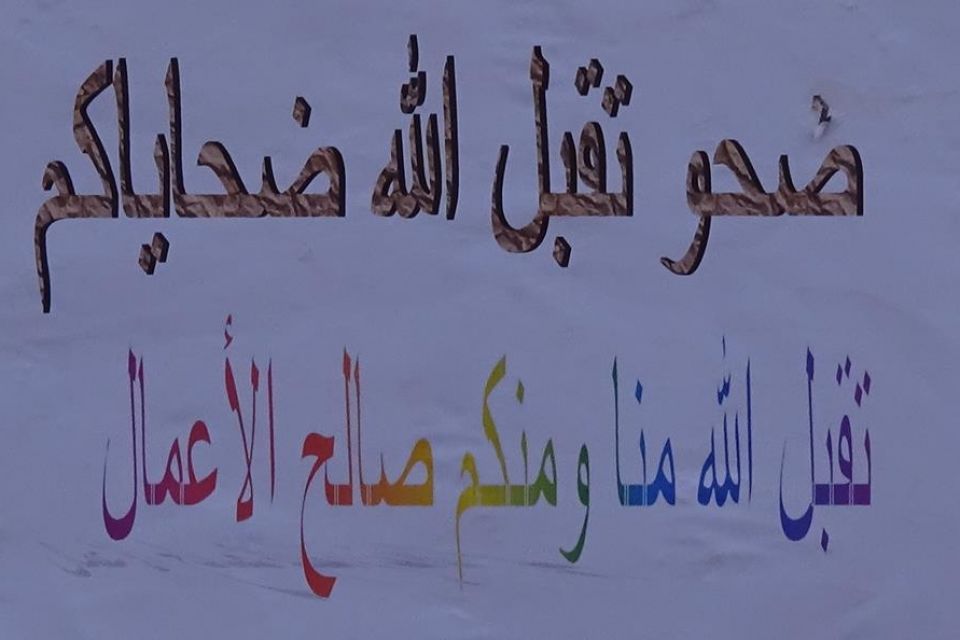 ضحو تقبل الله ضحاياكم
تقبل الله منا ومنكم صالح الأعمال